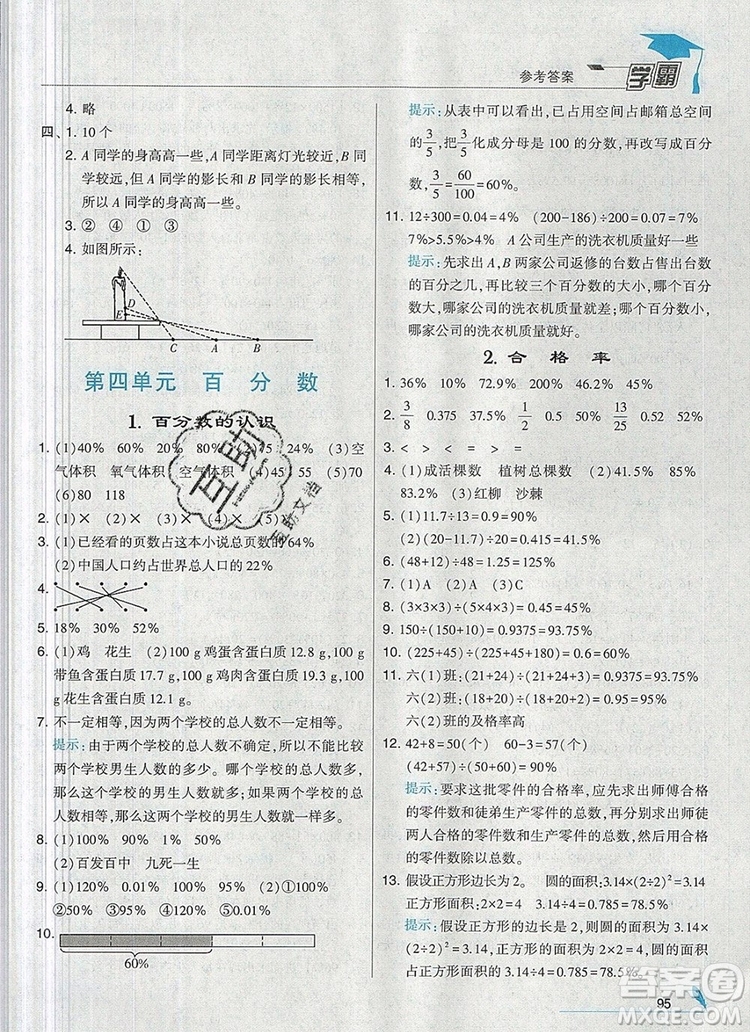 参考答案
学霸
4. 略
四、1. 10 个
2. A 同学的身高高一些,A 同学距离灯光较近,B 同
学较远,但 A 同学的影长和 B 同学的影长相等,
所以 A 同学的身高高一些。
3. ② ④ ① ③
4. 如图所示:
D
E
C A B
第四单元 百 分 数
1. 百分数的认识
1. (1)40% 60% 20% 80%
75% 24% (3)空
气体积 氧气体积 空气体积 (4)45 55 (5)70
(6)80 118
2. (1)× (2)× (3)× (4)× (5)
3. (1)已经看的页数占这本小说总页数的 64%
(2)中国人口约占世界总人口的 22%
4.
5. 18% 30% 52%
6. (1)鸡 花生 (2)100 g 鸡蛋含蛋白质 12.8 g,100 g
带鱼含蛋白质 17.7 g,100 g 鸡肉含蛋白质 19.3 g,100
g 花生含蛋白质 12.1 g。
7. 不一定相等,因为两个学校的总人数不一定相等。
提示:由于两个学校的总人数不确定,所以不能比较
两个学校男生人数的多少。哪个学校的总人数多,
哪个学校的男生人数就多;如果两个学校的总人数
同样多,那么两个学校的男生人数就一样多。
8. (1)100% 90% 1% 50%
(2)百发百中 九死一生
9. (1)120% 0.01% 100% (2)①100%
②50% ③95% ④120% ⑤0.01%
10.
60%
提示:从表中可以看出,已占用空间占邮箱总空间
的3/5,把3/5化成分母是 100 的分数,再改写成百分
数,3/5=60/100=60%。
11. 12÷300=0.04=4% (200-186)÷200=0.07=7%
7%>5.5%>4% A 公司生产的洗衣机质量好一些
提示:先求出 A,B 两家公司返修的台数占售出台数
的百分之几,再比较三个百分数的大小,哪家公司百
分数大,哪家公司的洗衣机质量就差;哪家公司百分数小,
哪家公司的洗衣机质量就好。
2. 合 格 率
1. 36% 10% 72.9% 200% 46.2% 45%
2. 3/8 0.375 37.5% 1/2 0.5 50% 13/25 0.52 52%
3. < > < = > =
4. (1)成活棵数 植树总棵数 (2)85% 80%
83.2% (3)红柳 沙棘
5. (1)(11.7÷13=0.9=90%
(2)(20-11.7)÷20=0.415=41.5%
6. (48+12)÷(48+32)=0.75=75%
7. (1)A (2)A (3)C
8. (3×3×3)÷(5×4×3)=0.45=45%
9. 150÷(150+10)=0.9375=93.75%
10. (225+45)÷(225+60+3)=0.9375=93.75%
11. 六(1)班:(21+24)÷(21+24+3)=93.75%
六(2)班:(18+20)÷(18+20+2)=95%
六(2)班的及格率高
12. 42+8=50(个) 60-3=57(个)
(42+57)÷(50+60)=0.9=90%
提示:要求这批零件的合格率,应先求出师傅合格
的零件数和徒弟生产零件的总数,然后用师徒
两人合格的零件数和生产零件的总数,然后用合格
的零件数除以总数。
13. 假设正方形边长为 2。 圆的面积:3.14×(2÷2)²=3.14
正方形面积:2×2=4 3.14÷4=0.785=78.5%
提示:假设正方形的边长是 2,则圆的面积为 3.14×
(2÷2)²=3.14,正方形的面积为 2×2=4,圆的面积
占正方形面积的 3.14÷4=0.785=78.5%。
95
答案圈
MXQE.COM
互助
互助文档